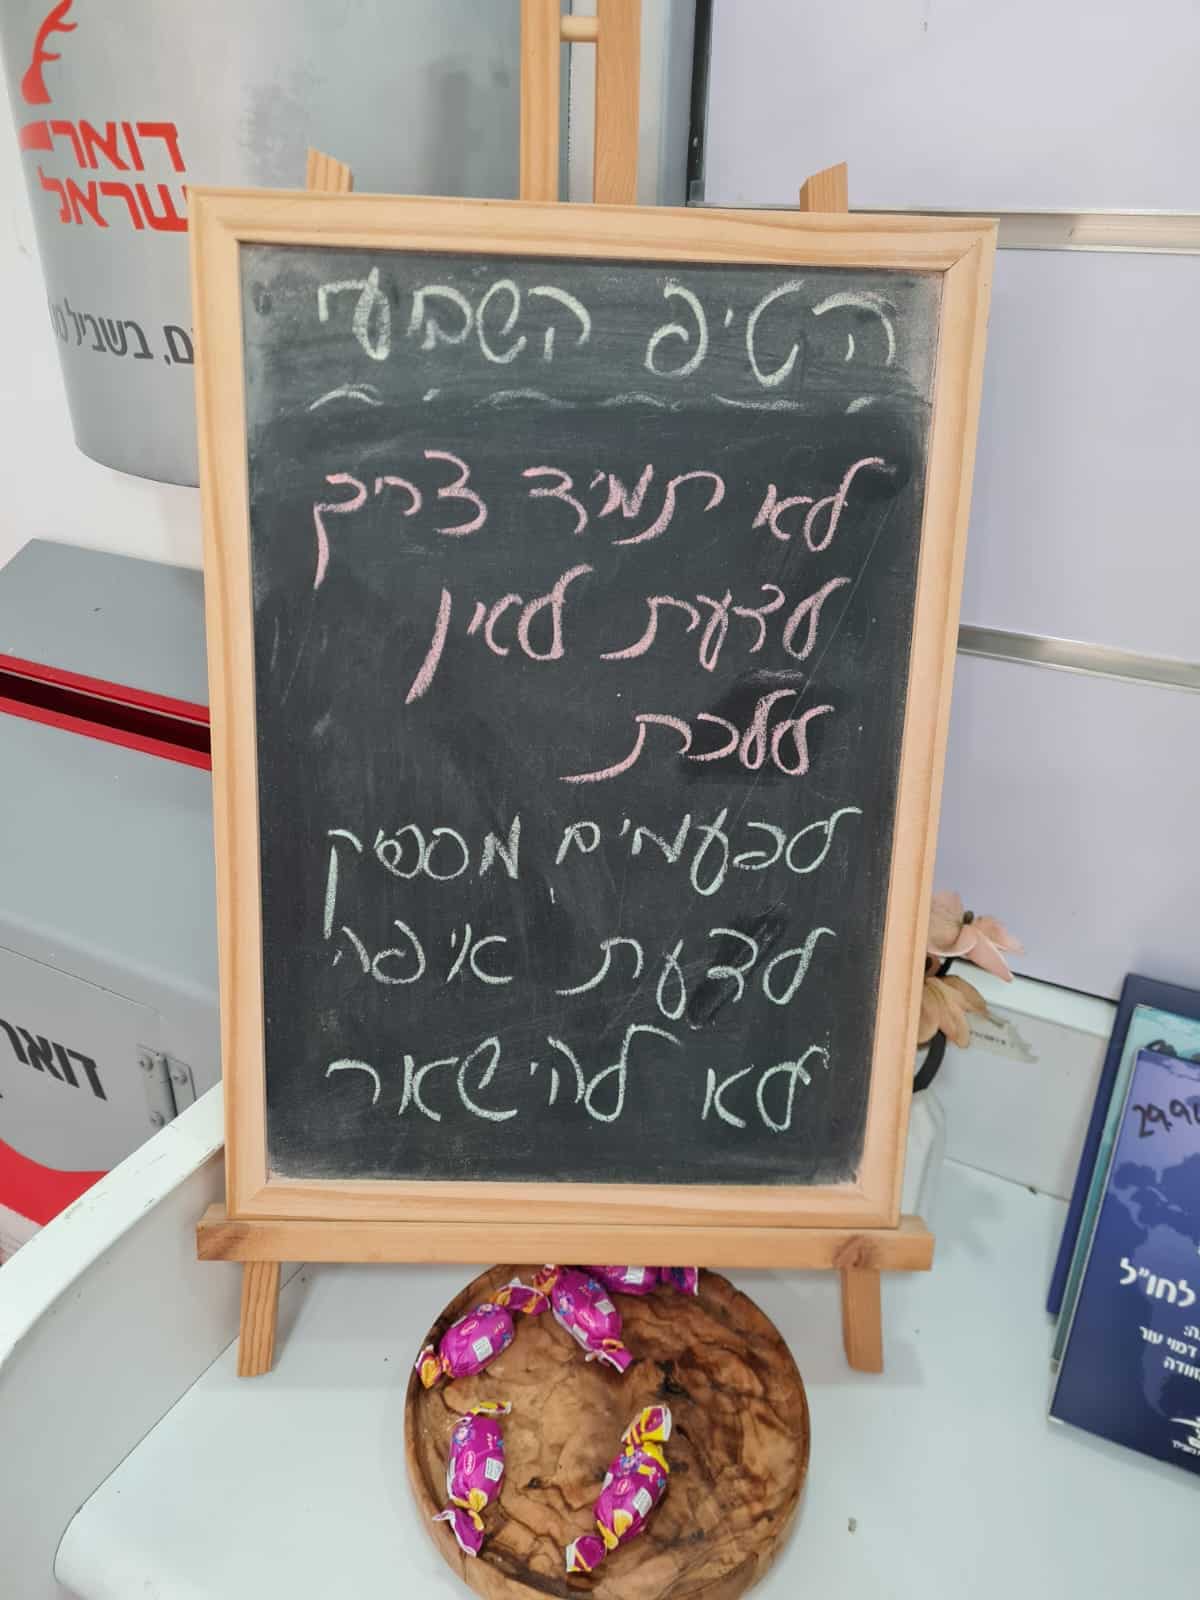 דואר
ישראל
ם, בשביל
הטיפ השבועי
לא תמיד צריך
לדעת לאן
ללכת
לפעמים מספיק
לדעת איפה
לא להישאר
דואר
29.90
לחו"ל
דמוי עור